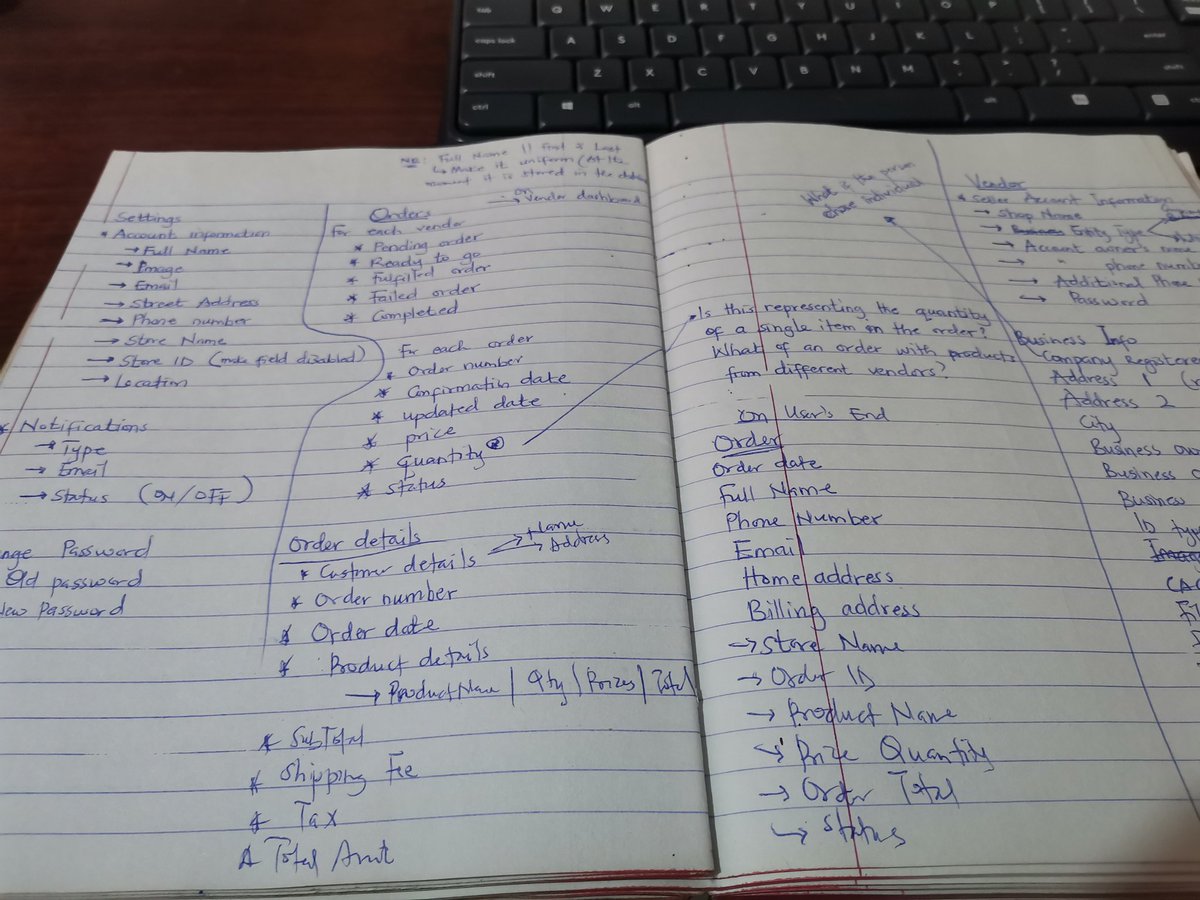 TAB Q W E R T Y U I O P
caps lock A S D F G H J K L enter
shift Z X C V B N M shift
ctrl alt alt
NB: Full Name || First & Last
↳ Make it uniform (At the
moment it is stored in the
on
Vendor dashboard
Settings
* Account information
→ Full Name
→ Image
→ Email
→ Street Address
→ Phone number
→ Store Name
→ Store ID (make field disabled)
→ Location
* Notifications
→ Type
→ Email
→ Status (ON/OFF)
Password
Old password
New Password
Orders
For each vendor
* Pending order
* Ready to go
* Fulfilled order
* Failed order
* Completed
For each order
* Order number
* Confirmation date
* updated date
* price
* Quantity *
* Status
Order details
* Customer details → Name
→ Address
* Order number
* Order date
* Product details
→ Product Name | Qty | Prizes | Total
* SubTotal
* Shipping Fee
* Tax
* Total Amt
What if the person
chose individual
Is this representing the quantity
of a single item on the order?
What of an order with products
from different vendors?
On User's End
Order
Order date
Full Name
Phone Number
Email
Home address
Billing address
→ Store Name
→ Order ID
→ Product Name
→ Prize Quantity
→ Order Total
→ Status
Vendor
* Seller Account Information
→ Shop Name
→ Business Entity Type
→ Account owner's name
→ " phone number
→ Additional Phone
→ Password
Business Info
Company Registered
Address 1
Address 2
City
Business
Business
Business
ID type